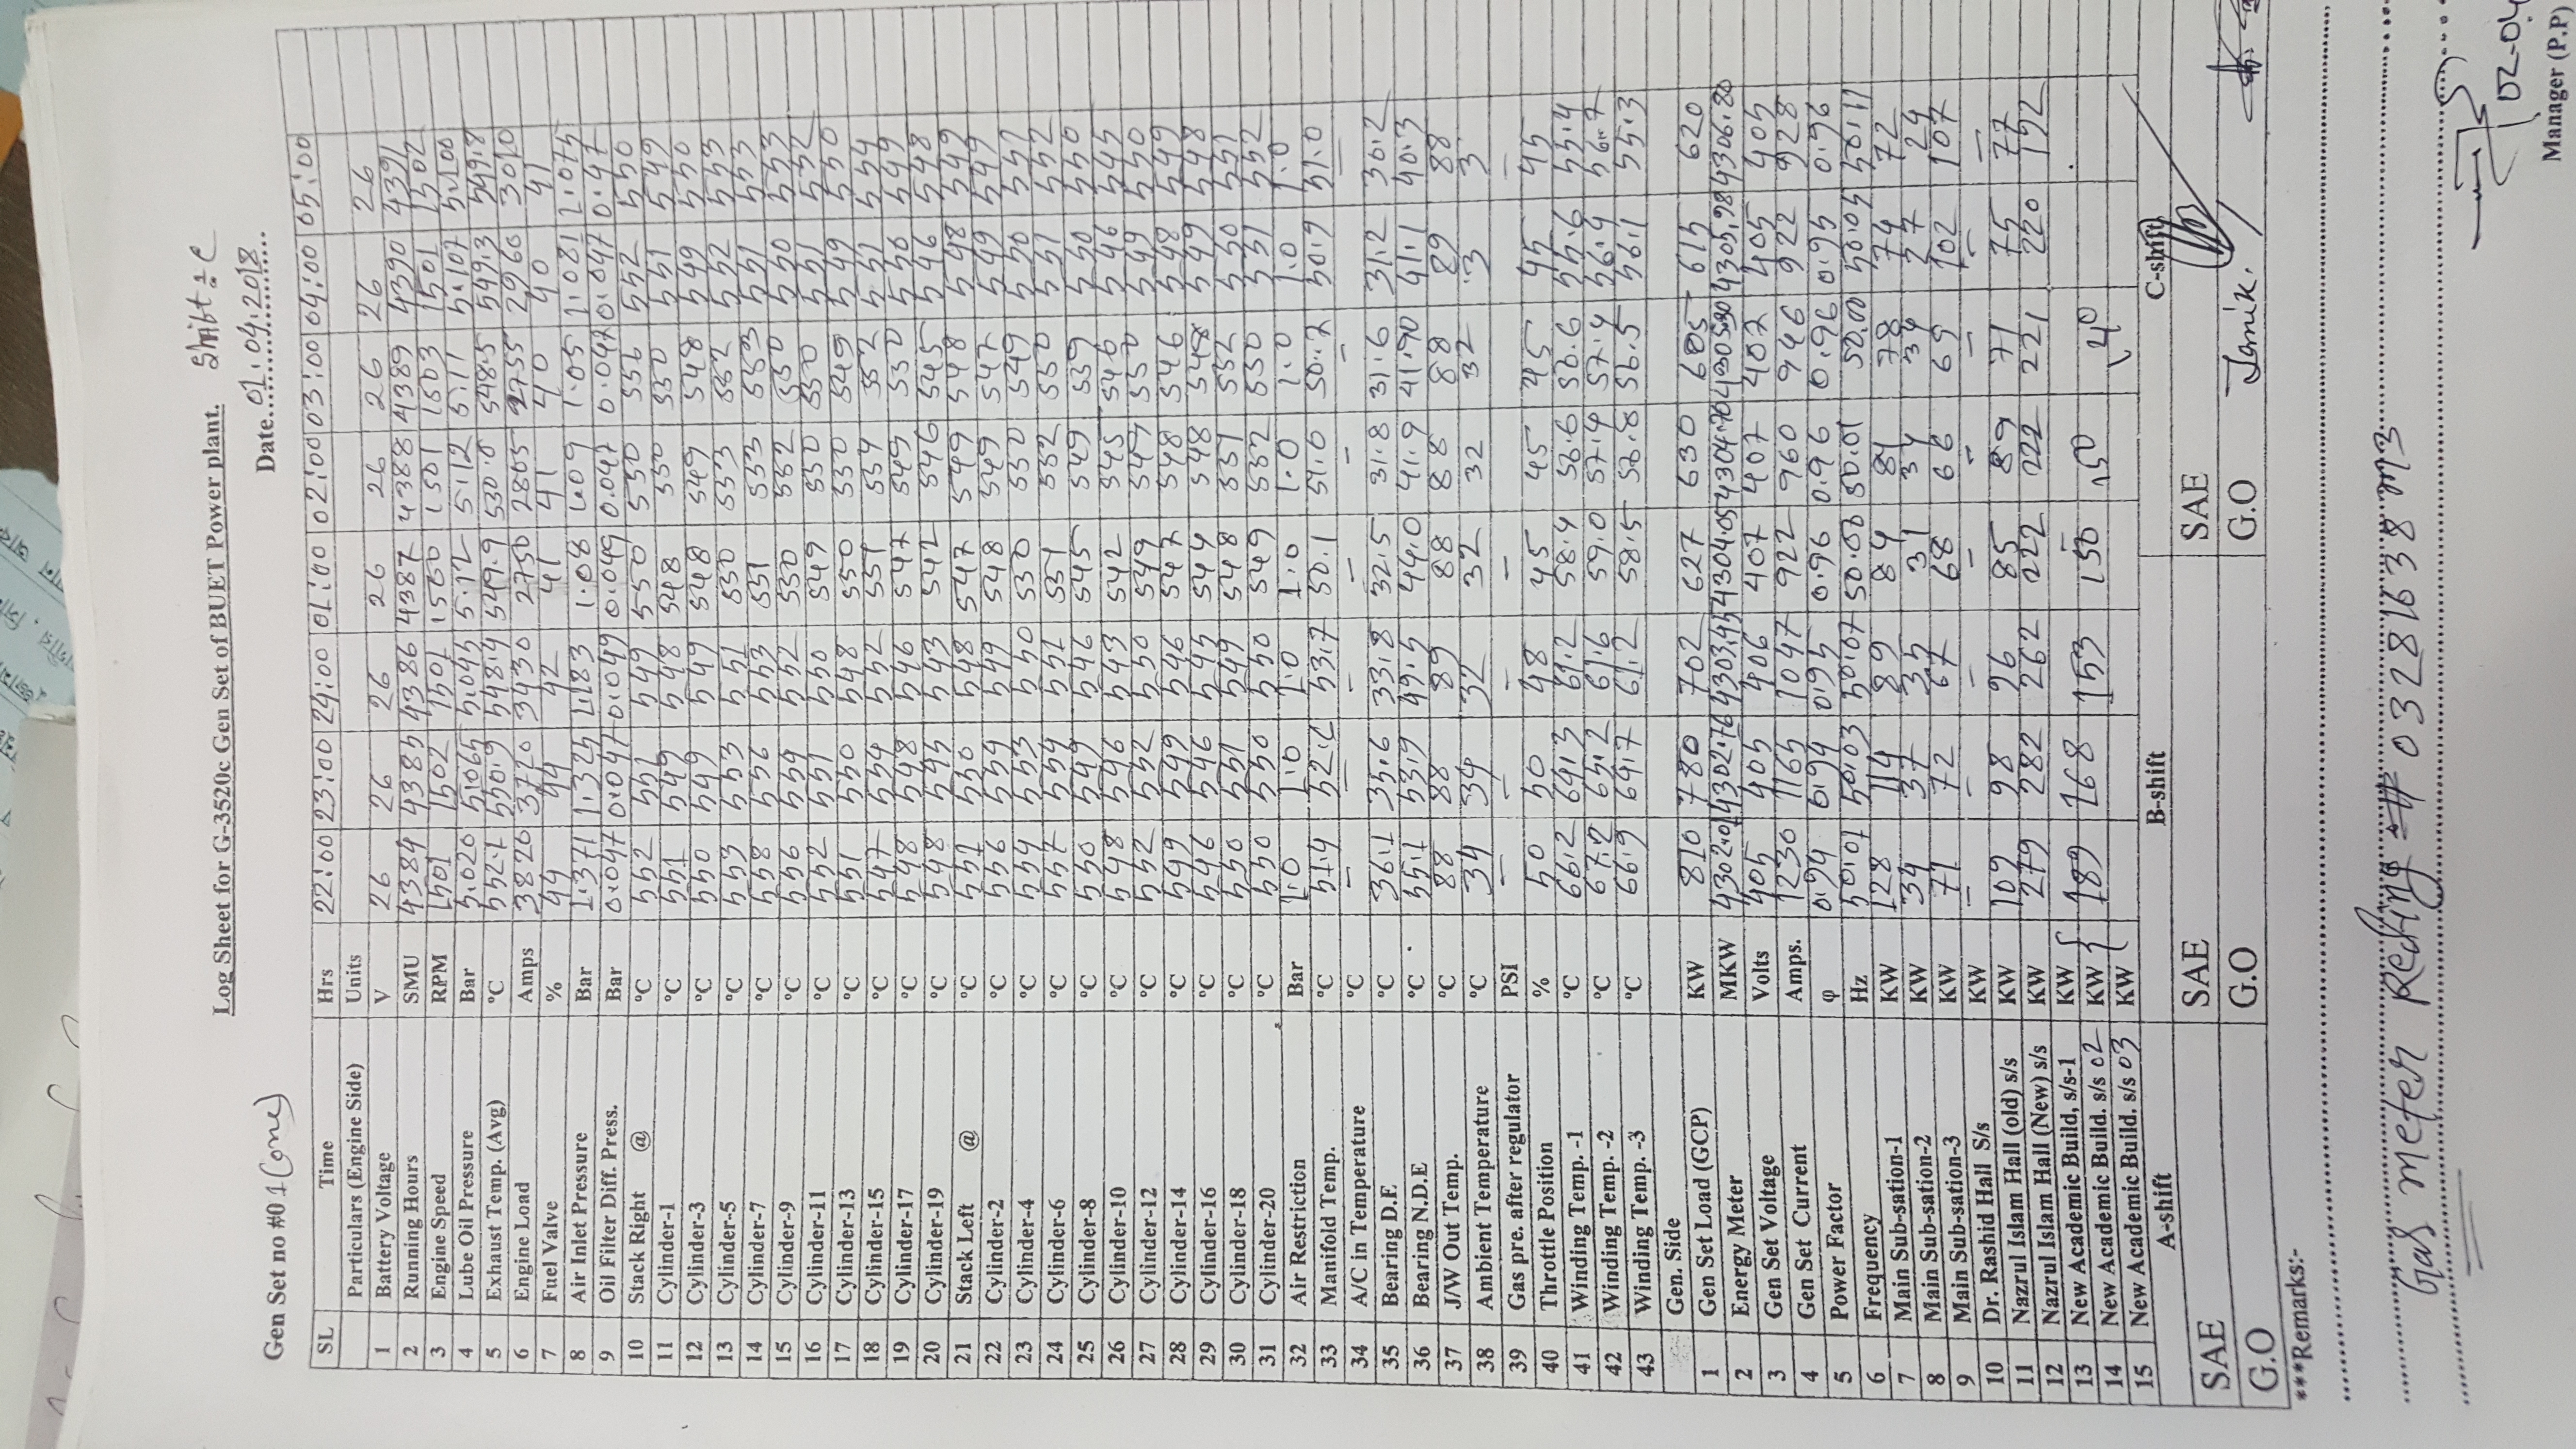 Log Sheet for G-3520c Gen Set of BUET Power plant. Shift : C
Gen Set no #0 1 (one) Date..01.04.2018..
SL Time Hrs 22:00 23:00 24:00 01:00 02:00 03:00 04:00 05:00
Particulars (Engine Side) Units
1 Battery Voltage V 26 26 26 26 26 26 26 26
2 Running Hours SMU 4384 4385 4386 4387 4388 4389 4390 4391
3 Engine Speed RPM 1501 1502 1501 1500 1501 1503 1501 1502
4 Lube Oil Pressure Bar 5.020 5.065 5.045 5.12 5.12 5.11 5.107 5.100
5 Exhaust Temp. (Avg) °C 552.1 550.9 548.4 549.9 550.0 548.5 549.3 549.8
6 Engine Load Amps 3820 3720 3430 2750 2805 2755 2960 3010
7 Fuel Valve % 44 44 42 41 41 40 40 41
8 Air Inlet Pressure Bar 1.371 1.325 1.183 1.08 1.09 1.05 1.081 1.075
9 Oil Filter Diff. Press. Bar 0.047 0.047 0.049 0.049 0.047 0.047 0.047 0.47
10 Stack Right @ °C 552 551 549 550 550 551 552 550
11 Cylinder-1 °C 551 549 548 548 550 550 551 549
12 Cylinder-3 °C 550 549 549 548 549 548 549 550
13 Cylinder-5 °C 553 553 551 550 553 552 552 553
14 Cylinder-7 °C 558 556 553 551 553 553 551 553
15 Cylinder-9 °C 556 554 552 550 552 550 550 553
16 Cylinder-11 °C 552 551 550 549 550 550 551 552
17 Cylinder-13 °C 551 550 548 550 550 549 549 550
18 Cylinder-15 °C 547 554 552 551 554 552 551 554
19 Cylinder-17 °C 548 548 546 547 549 550 550 549
20 Cylinder-19 °C 548 545 543 542 546 545 546 548
21 Stack Left @ °C 551 550 548 547 549 548 548 549
22 Cylinder-2 °C 556 554 549 548 549 547 549 549
23 Cylinder-4 °C 554 553 550 550 550 549 550 551
24 Cylinder-6 °C 557 554 551 551 552 550 551 552
25 Cylinder-8 °C 550 549 546 545 549 539 550 550
26 Cylinder-10 °C 548 546 543 542 545 546 546 545
27 Cylinder-12 °C 552 552 550 549 547 550 549 550
28 Cylinder-14 °C 549 549 546 547 548 546 548 549
29 Cylinder-16 °C 546 546 545 544 548 548 549 548
30 Cylinder-18 °C 550 551 549 548 551 552 550 551
31 Cylinder-20 °C 550 550 550 549 552 550 551 552
32 Air Restriction Bar 1.0 1.0 1.0 1.0 1.0 1.0 1.0 1.0
33 Manifold Temp. °C 51.4 53.7 50.1 51.0 50.7 50.9 51.0
34 A/C in Temperature °C – – – – – – –
35 Bearing D.E °C 36.1 35.6 33.8 32.5 31.8 31.6 31.2 30.2
36 Bearing N.D.E °C 55.1 53.9 49.5 44.0 41.9 41.90 41.1 40.3
37 J/W Out Temp. °C 88 88 89 88 88 88 89 88
38 Ambient Temperature °C 34 34 32 32 32 32 3 3
39 Gas pre. after regulator PSI – – – – –
40 Throttle Position % 50 50 48 45 45 45 45 45
41 Winding Temp. -1 °C 66.2 64.3 61.2 58.4 56.6 56.6 55.6 55.4
42 Winding Temp. -2 °C 67.2 65.2 61.6 59.0 57.4 57.4 56.4 56.7
43 Winding Temp. -3 °C 66.9 64.7 61.2 58.5 56.8 56.5 56.1 55.3
Gen. Side
1 Gen Set Load (GCP) KW 810 780 702 627 630 605 615 620
2 Energy Meter MKW 4302.01 4302.76 4303.45 4304.05 4304.70 4305.30 4305.98 4306.80
3 Gen Set Voltage Volts 405 405 406 407 407 407 405 405
4 Gen Set Current Amps. 1230 1165 1047 922 960 946 922 928
5 Power Factor φ 0.94 0.94 0.95 0.96 0.96 0.96 0.95 0.96
6 Frequency Hz 50.01 50.03 50.07 50.00 50.01 50.00 50.05 50.11
7 Main Sub-sation-1 KW 128 114 89 84 84 78 74 72
8 Main Sub-sation-2 KW 34 37 35 31 34 34 27 24
9 Main Sub-sation-3 KW 71 72 67 68 66 65 102 107
10 Dr. Rashid Hall S/s KW – – – – – – – –
11 Nazrul Islam Hall (old) s/s KW 109 98 96 85 89 71 75 77
12 Nazrul Islam Hall (New) s/s KW 279 282 262 222 222 221 220 192
13 New Academic Build, s/s-1 KW
14 New Academic Build. s/s 02 KW { 189 168 153 150 150 140
15 New Academic Build. s/s 03 KW
A-shift B-shift C-shift
SAE SAE SAE
G.O G.O G.O
***Remarks:-
Gas meter Reding # 03281638 m3
02-04
Manager (P.P)